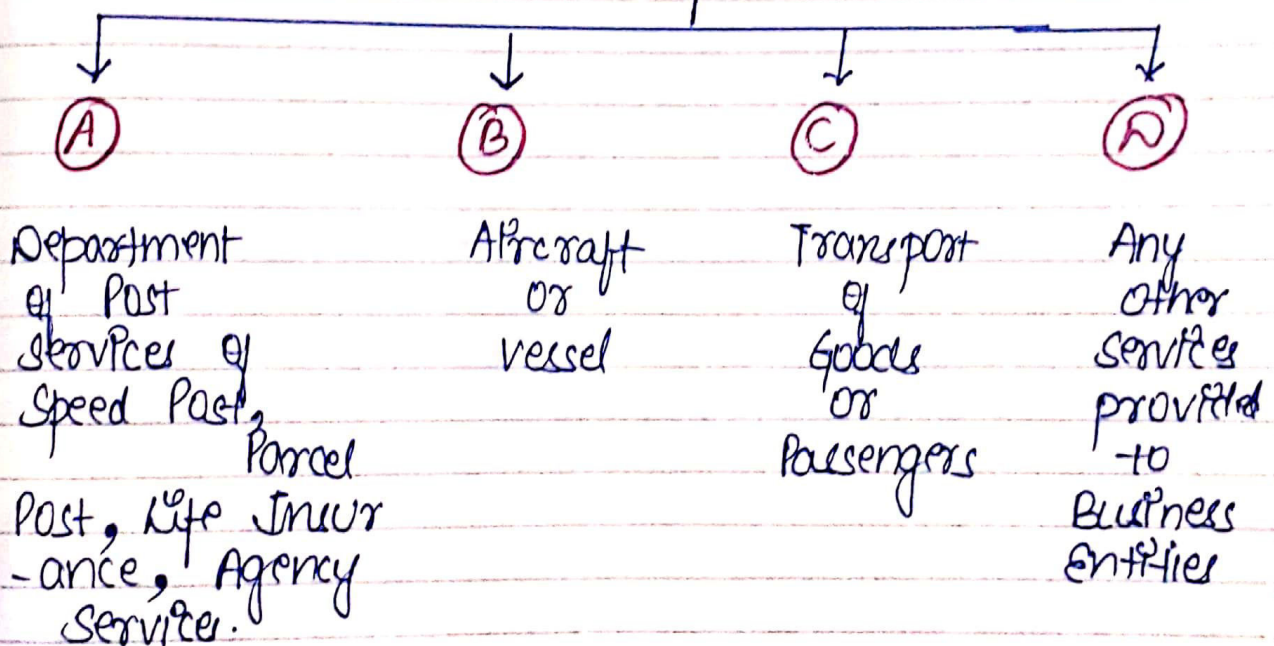 A
B
C
D
Department
of Post
services of
Speed Post,
Parcel
Post, Life Insur
-ance, Agency
Services.
Aircraft
or
vessel
Transport
of
Goods
or
Passengers
Any
other
services
provided
to
Business
Entities